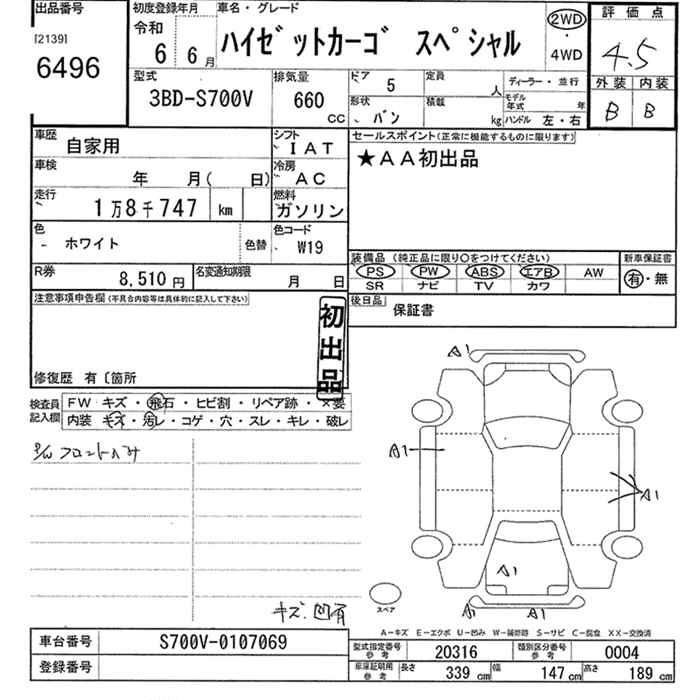 出品番号
[2139]
6496
初度登録年月
令和
6 6月
車名・グレード
ハイゼットカーゴ スペシャル
2WD
・
4WD
評価点
4.5
外装 内装
B B
型式
3BD-S700V
排気量
660
CC
ドア 5
形状 バン
定員 人
積載 kg
ディーラー・並行
モデル年式 年
ハンドル 左・右
車歴 自家用
シフト IAT
車検 年 月( 日)
冷房 AC
走行 1万8千747 km
燃料 ガソリン
色 ホワイト 色替
色コード W19
R券 8,510円
名変通知期限 月 日
セールスポイント(正常に機能するものに限ります)
★AA初出品
装備品 (純正品に限り○をつけてください)
PS PW ABS エアB AW
SR ナビ TV カワ
新車保証書
有・無
後日品 保証書
注意事項申告欄(不具合内容等は具体的に記入して下さい)
初出品
修復歴 有〔箇所
検査員記入欄
FW キズ・飛石・ヒビ割・リペア跡・×要
内装 キズ・汚レ・コゲ・穴・スレ・キレ・破レ
フロントハミ
キズ、凹有
A1
A1
A1
A1
A1
A1
スペア
A-キズ E-エクボ U-凹み W-補修跡 S-サビ C-腐食 XX-交換済
車台番号 S700V-0107069
登録番号
型式指定番号 参考 20316
類別区分番号 参考 0004
車庫証明用 参考 長さ 339 cm 幅 147 cm 高さ 189 cm